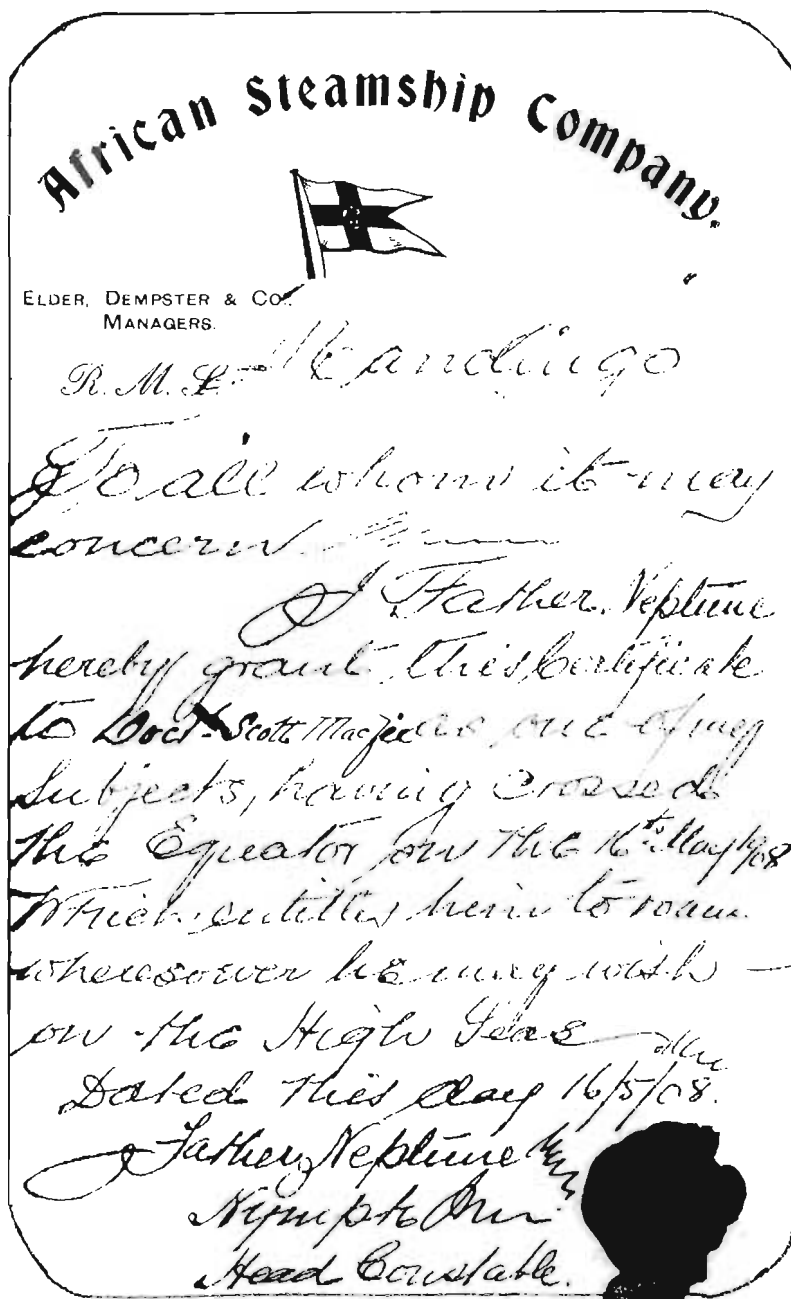 African Steamship Company.
ELDER, DEMPSTER & CO.,
MANAGERS.
R. M. S. Mandingo
To all whom it may
concern
I Father Neptune
hereby grant this Certificate
to Doctr Scott Macfie as one of my
Subjects, having crossed
the Equator on the 16th May 1908
Which entitles him to roam
wheresoever he may wish —
on the High Seas
Dated this day 16/5/08.
Father Neptune
Nymph
Head Constable.